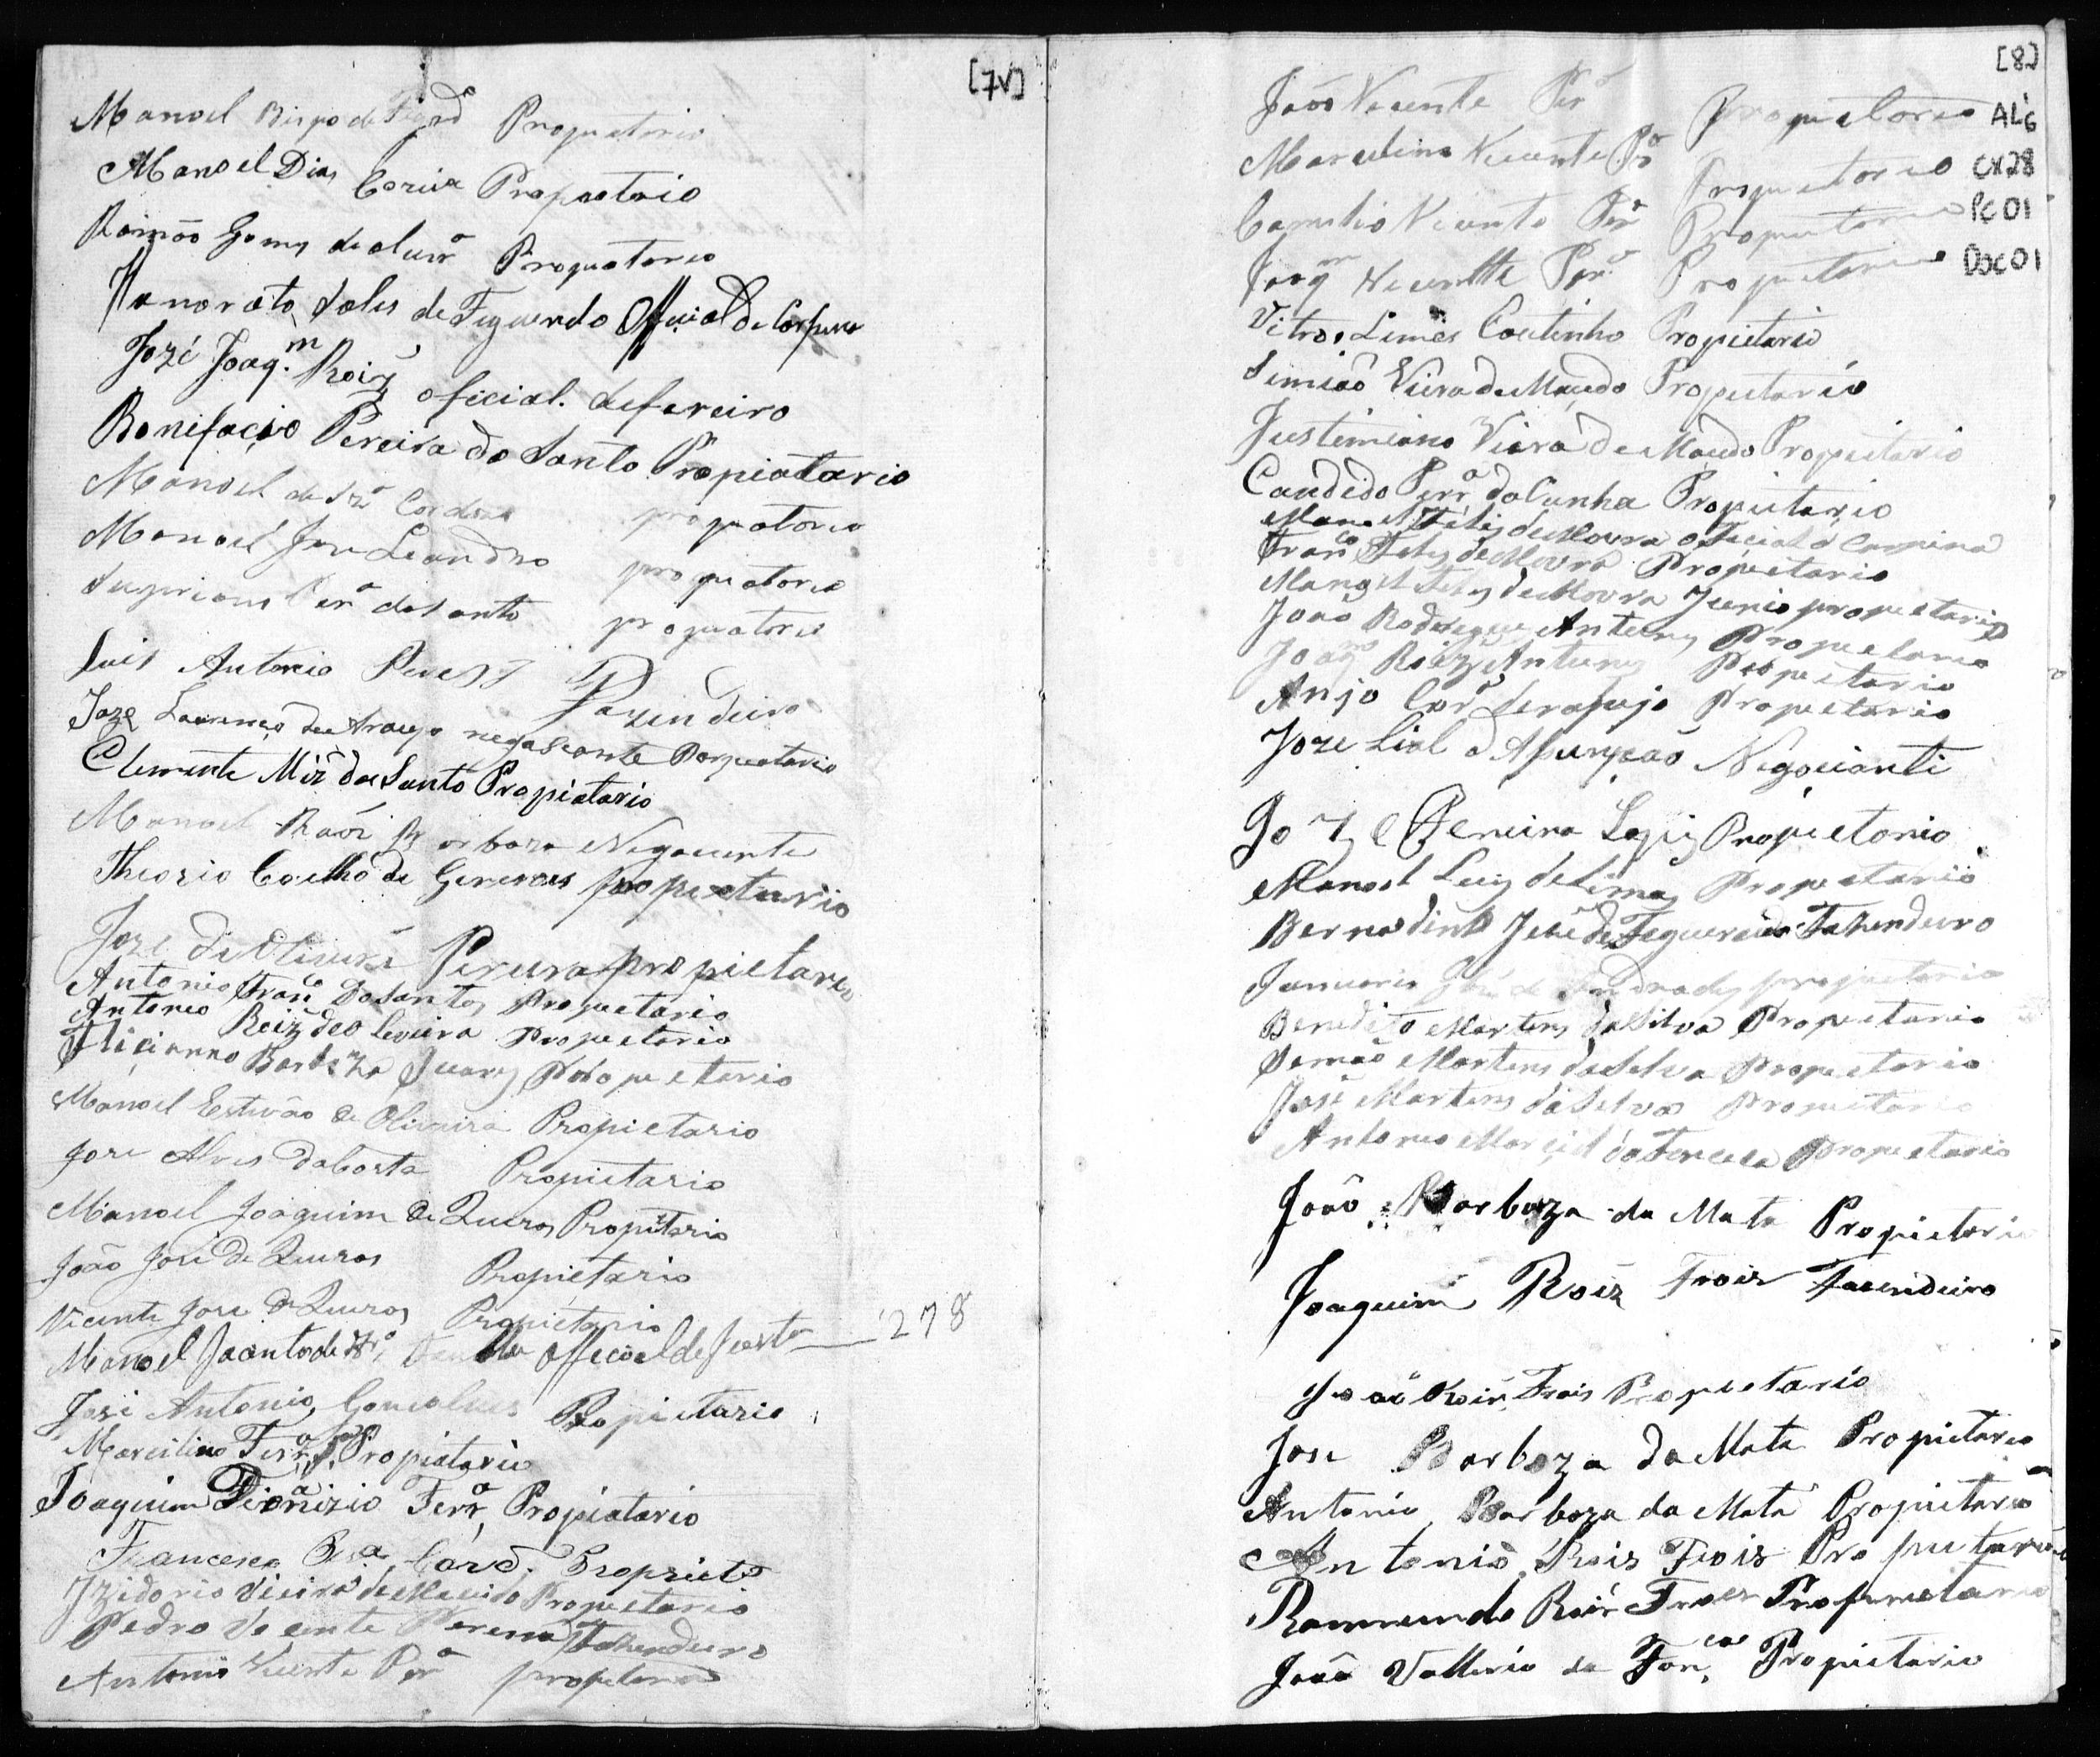 [7v]
Manoel Bispo de Figrdo Propietario
Manoel Dias Correia Propietario
Raimão Gomes de olivrª Propietario
Honorato Sales de Figueredo Official de Carpina
Jozé Joaq.m Roiz oficial. defereiro
Bonifacio Pereira do Santo Propiatario
Manoel de Szª Cardozo propiatorio
Manoel Jose Leandro propiatorio
Supriano Perª do Santo propiatorio
Luis Antonio Peres Fazendeiro
Joze Lourenço de Araujo negosiante Porpietario
Clemente Miz dos Santo Propiatario
Manoel Barboza Negociante
Theozio Coelho de propietario
Joze de Oliveira Pereira propietario
Antonio Franco Dosantos Propietario
Antonio Roiz deo leveira Propietario
Flicianno Barboza Suares Propietario
Manoel Estivão de Oliveira Propietario
Jose Alves da Costa Propietario
Manoel Joaquim de Queros Propietario
João José de Queros Propietario
Vicente Jose de Queros Propietario
Manoel Jacinto de Offecial de Justa 278
José Antonio Goncalves Propietario
Marcilino Ferrª Propiatario
Joaquim Dionizio Ferrª Propiatario
Francisco Card. Propriet
Izidorio Vieira de Macido Propietario
Pedro Vecente Pereira Fazendeiro
Antonio Vicente Perª propietario
[8]
AL6
CX28
PC01
Doc01
João Vecente Perª Propietorio
Marcelino Vicente Pª Propietorio
Cornelio Vicente Perª Propietario
Joaqm Vicente Perª Propietario
Vitro Lemes Coutinho Propietario
Simião Vieira de Macedo Propietario
Justiniano Viera de Macedo Propietario
Candido Perrª da Cunha Propietario
Manoel Felis de Moura oficial d Carpina
Franco Felis de Moura Propietario
Manoel Felis de Moura Junio propietario
João Rodrigues Antunes Propietario
Joaqm Roiz Antunes Propietario
Anjo Corª deraujo Propietario
Joze Lial d Asumpcao Negocianti
Joze Pereira Lopiz Propietorio
Manoel Luiz de Lima Propietario
Bernadino José de Figueredo Fazendeiro
Januario José de Andrades propietario
Benedito Martins da Silva Propietario
Semão Martins da Selva Propietario
José Martins da Selva Propietario
Antonio Marcial da Fonceca Propietario
João Barboza da Mata Propietario
Joaquim Roiz Frois Facendeiro
João Roiz Frois Propietario
Jose Barboza da Mata Propietario
Antonio Barboza da Mata Propietario
Antonio Rois Frois Propietario
Raimundo Roiz Froes Propruetario
João Vallerio da Fonca Propietario